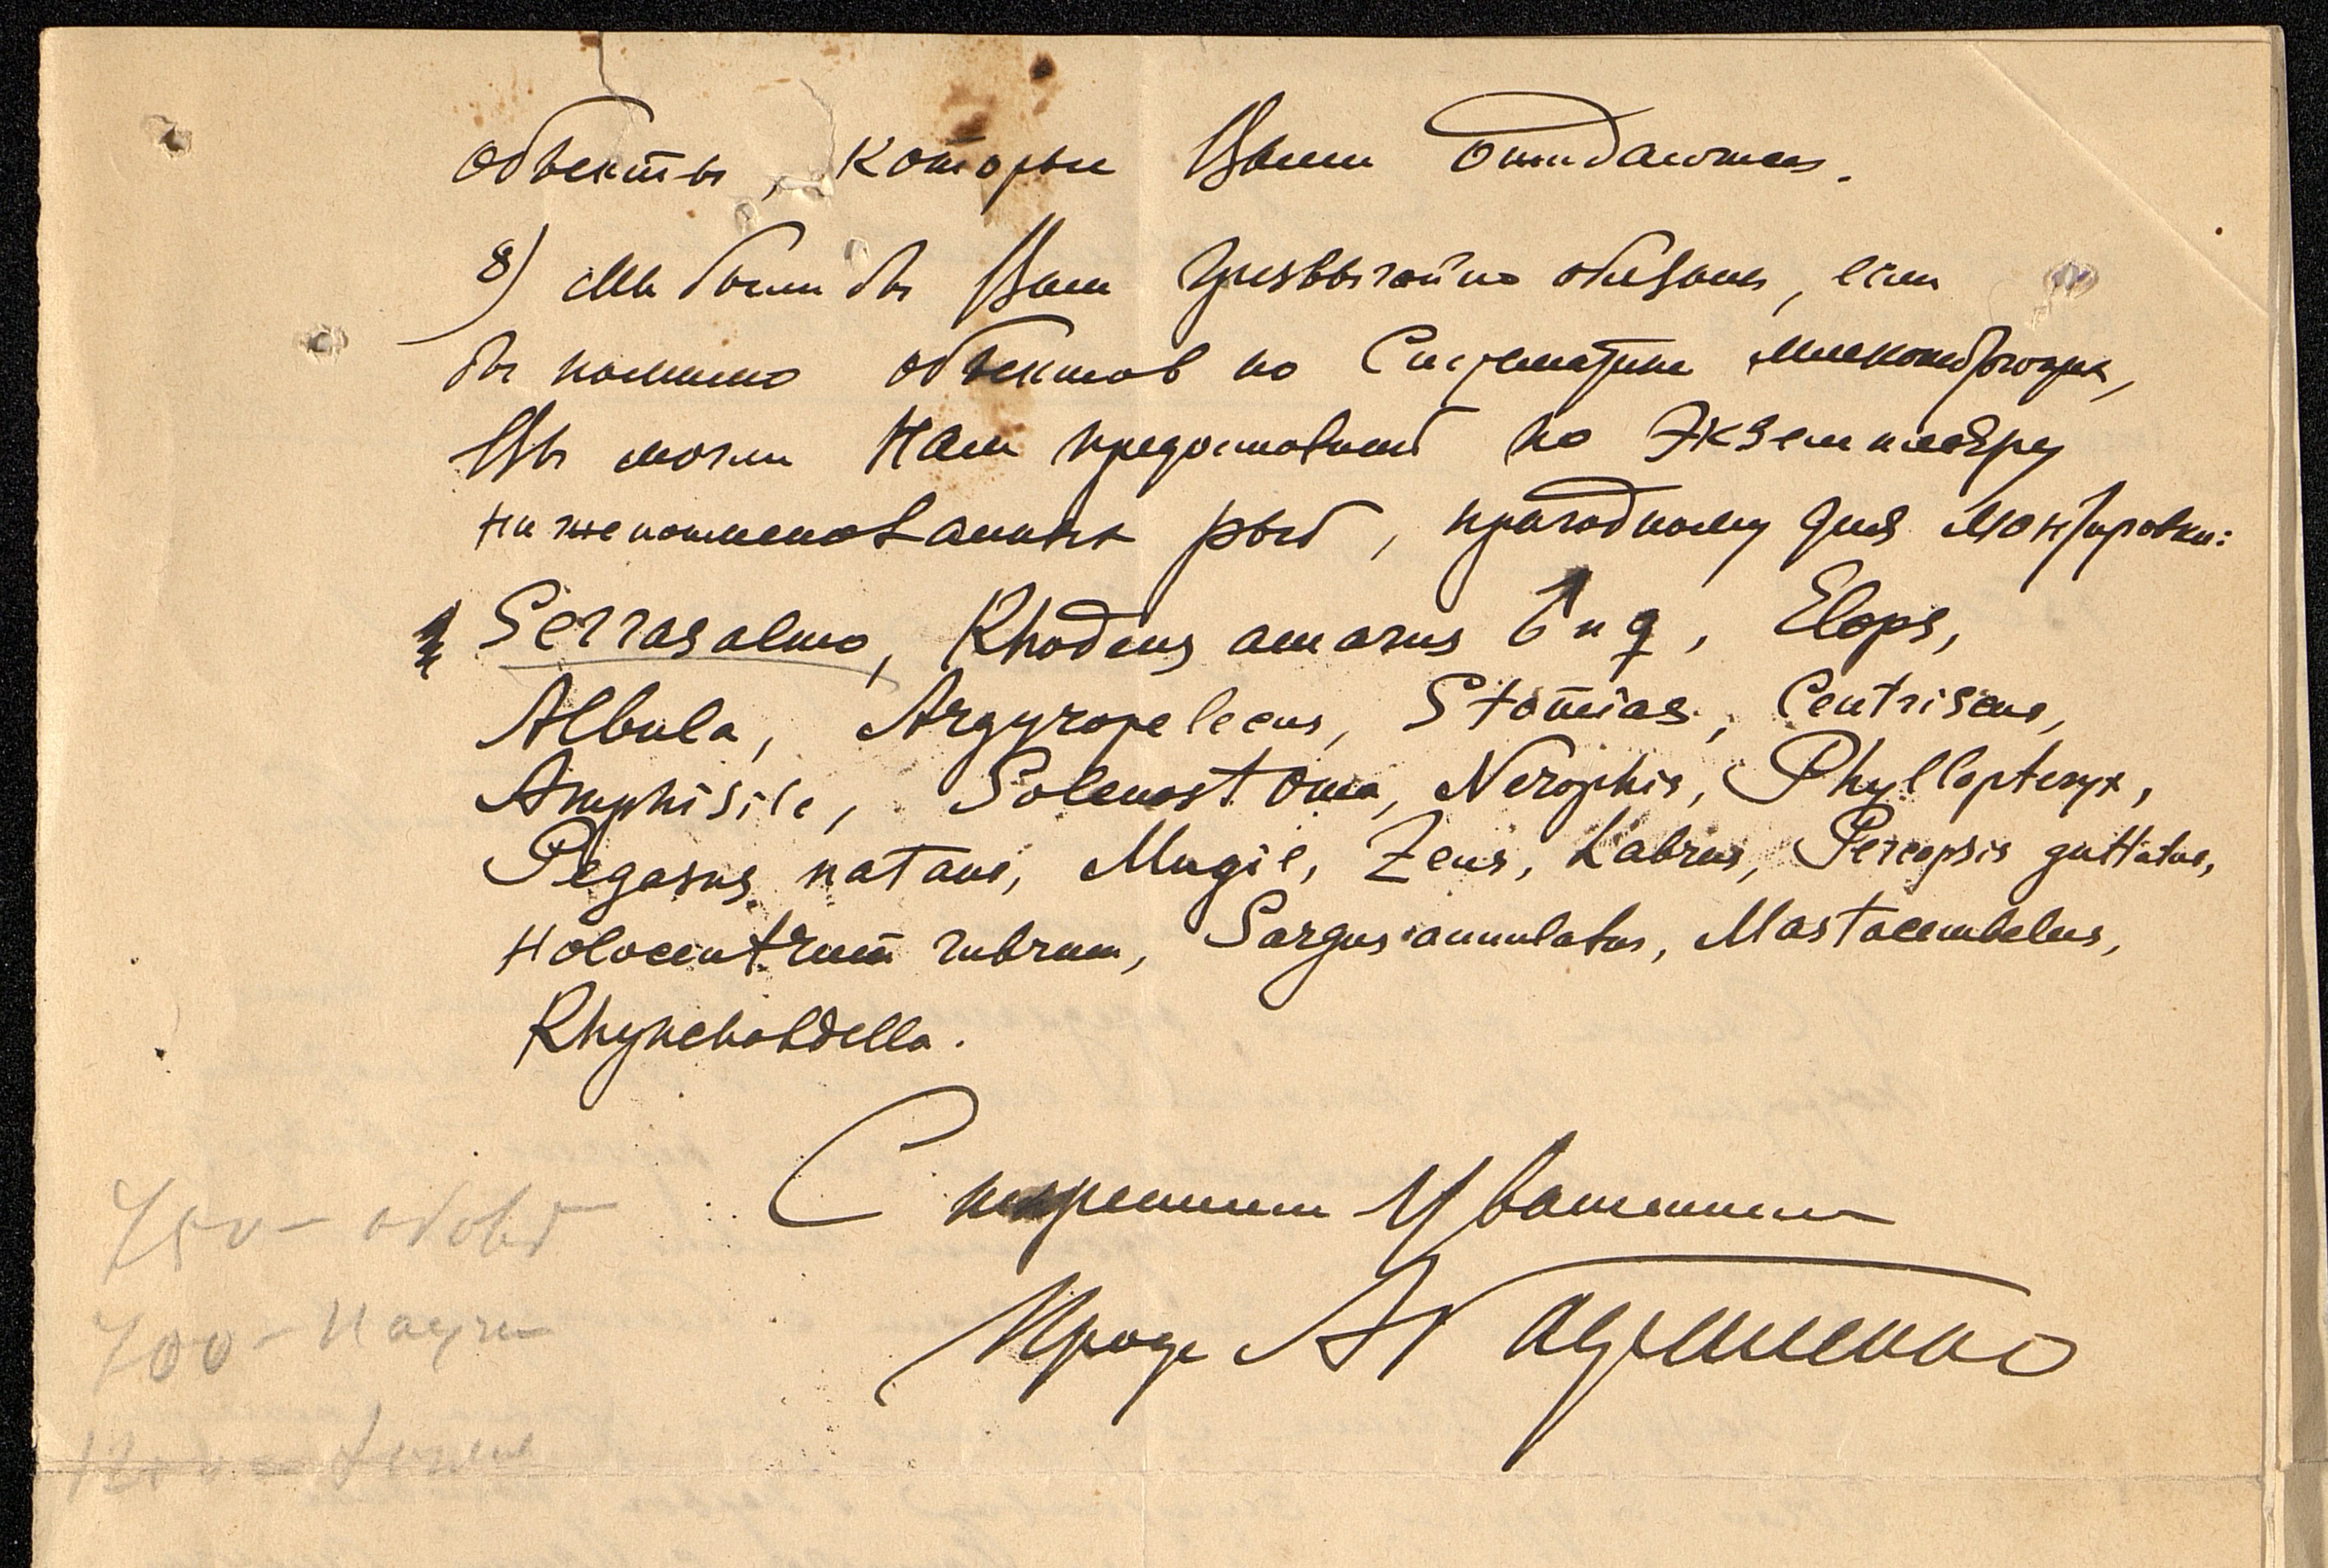 объекты, которые Вами отдаются.
8) Мы были бы Вам чрезвычайно обязаны, если
бы помимо объектов по Систематике млекопитающих,
Вы могли нам предоставить по экземпляру
нижепоименованных рыб, пригодному для монтировки:
Serrasalmo, Rhodeus amarus ♂ и ♀, Elops,
Albula, Argyropelecus, Stomias, Centriscus,
Amphisile, Solenostoma, Nerophis, Phyllopteryx,
Pegasus natans, Mugil, Zeus, Labrus, Percopsis guttatus,
Holocentrum rubrum, Sargus annulatus, Mastacembelus,
Rhynchobdella.
С искренним уважением
Проф
700 - Научн